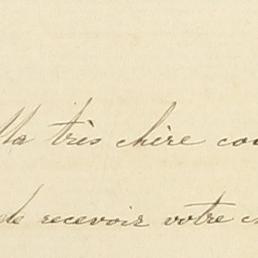 Ma très chère cou
de recevoir votre c